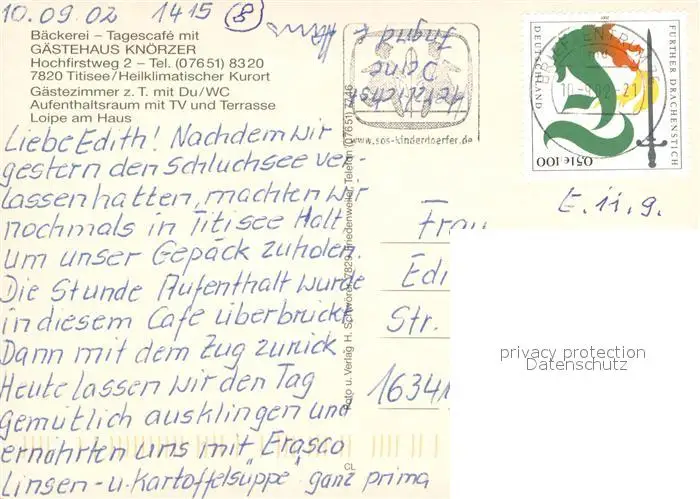 10.09.02 1415 (8)
Bäckerei – Tagescafé mit
GÄSTEHAUS KNÖRZER
Hochfirstweg 2 – Tel. (07651) 8320
7820 Titisee/Heilklimatischer Kurort
Gästezimmer z. T. mit Du/WC
Aufenthaltsraum mit TV und Terrasse
Loipe am Haus
Liebe Edith! Nachdem wir
gestern den Schluchsee ver-
lassen hatten, machten wir
nochmals in Titisee Halt
um unser Gepäck zuholen.
Die Stunde Aufenthalt wurde
in diesem Cafe überbrückt
Dann mit dem Zug zurück
Heute lassen wir den Tag
gemütlich ausklingen und
ernährten uns mit "Erasco
Linsen- u. Kartoffelsüppe" ganz prima
Herzlichst
Deine
Ingrid
www.sos-kinderdoerfer.de
Foto u. Verlag H. 7829 Friedenweiler, Telefon (07651) 7246
CL
DEUTSCHLAND
FURTHER DRACHENSTICH
2001
0,51€ 100
BRIEFZENTRUM
10.-9.02-21
E. 11.9.
Frau
Edi
Str.
16341
privacy protection
Datenschutz